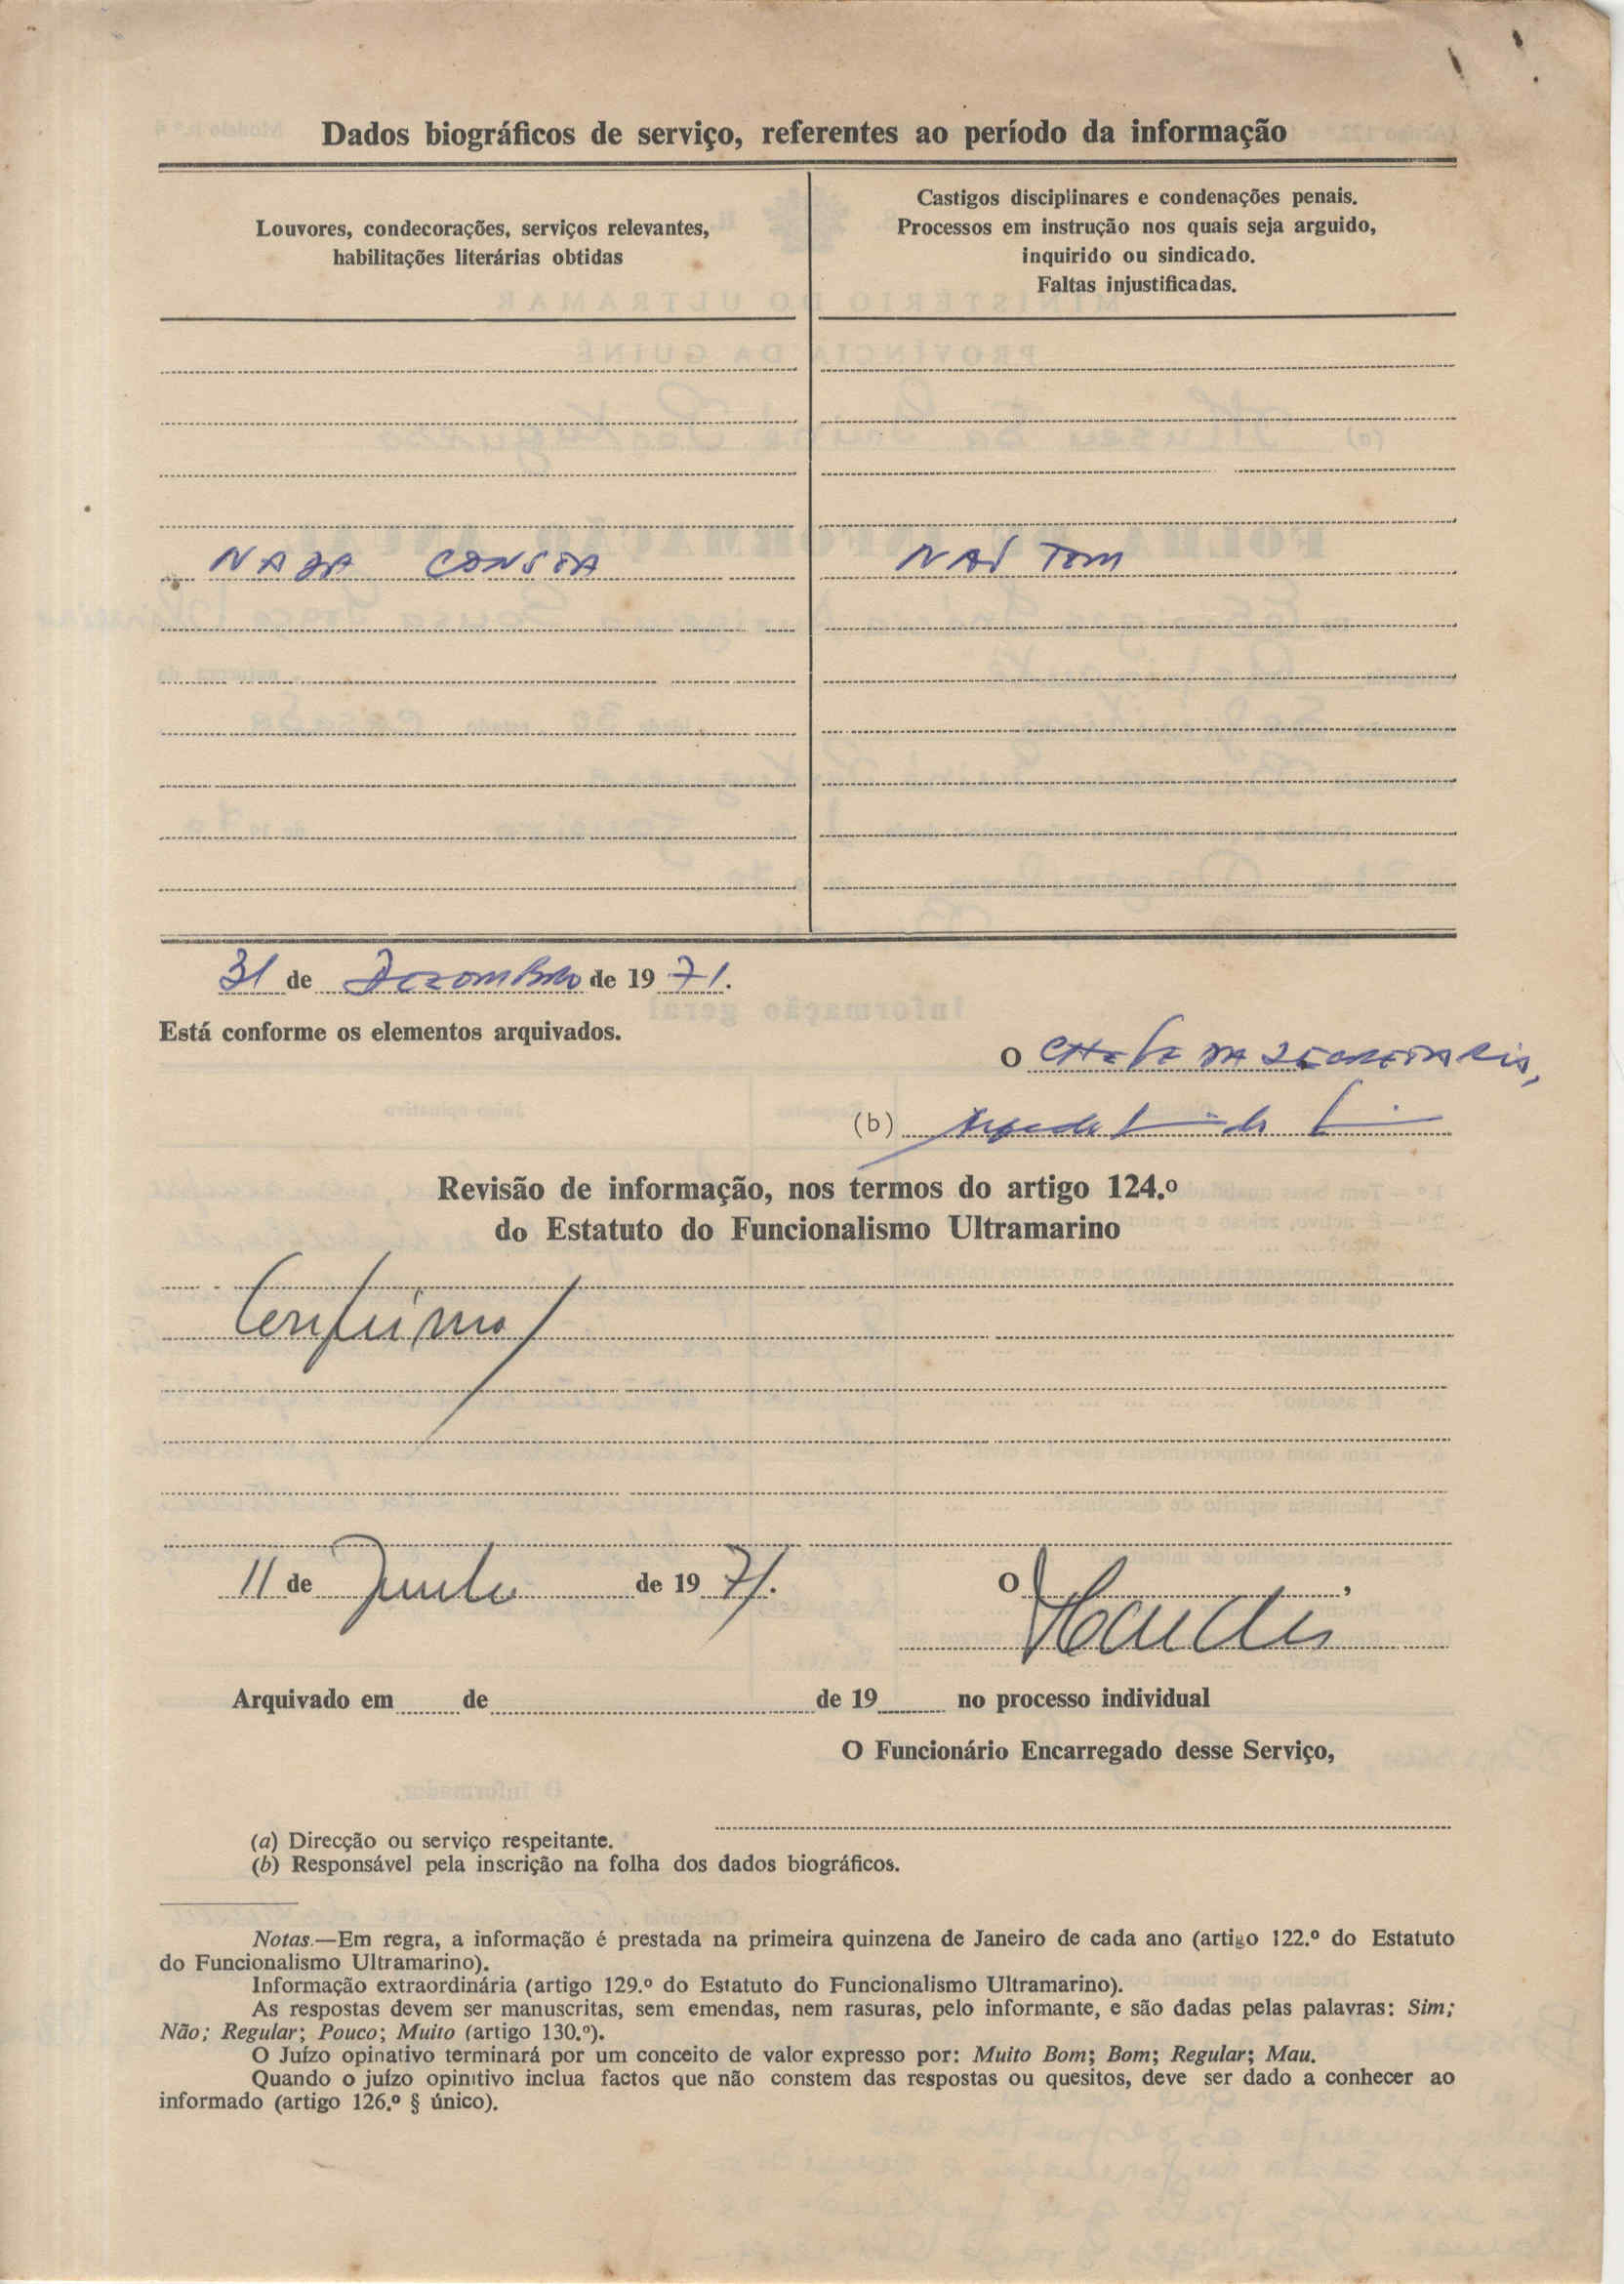 Dados biográficos de serviço, referentes ao período da informação
Louvores, condecorações, serviços relevantes,
habilitações literárias obtidas
Castigos disciplinares e condenações penais.
Processos em instrução nos quais seja arguido,
inquirido ou sindicado.
Faltas injustificadas.
NADA CONSTA
NÃO TEM
31 de Dezembro de 1971.
Está conforme os elementos arquivados.
O CHEFE DA SECRETARIA,
(b)
Revisão de informação, nos termos do artigo 124.º
do Estatuto do Funcionalismo Ultramarino
Confirmo
11 de Junho de 1971.
O ,
Arquivado em de de 19 no processo individual
O Funcionário Encarregado desse Serviço,
(a) Direcção ou serviço respeitante.
(b) Responsável pela inscrição na folha dos dados biográficos.
Notas.—Em regra, a informação é prestada na primeira quinzena de Janeiro de cada ano (artigo 122.º do Estatuto
do Funcionalismo Ultramarino).
Informação extraordinária (artigo 129.º do Estatuto do Funcionalismo Ultramarino).
As respostas devem ser manuscritas, sem emendas, nem rasuras, pelo informante, e são dadas pelas palavras: Sim;
Não; Regular; Pouco; Muito (artigo 130.º).
O Juízo opinativo terminará por um conceito de valor expresso por: Muito Bom; Bom; Regular; Mau.
Quando o juízo opinitivo inclua factos que não constem das respostas ou quesitos, deve ser dado a conhecer ao
informado (artigo 126.º § único).